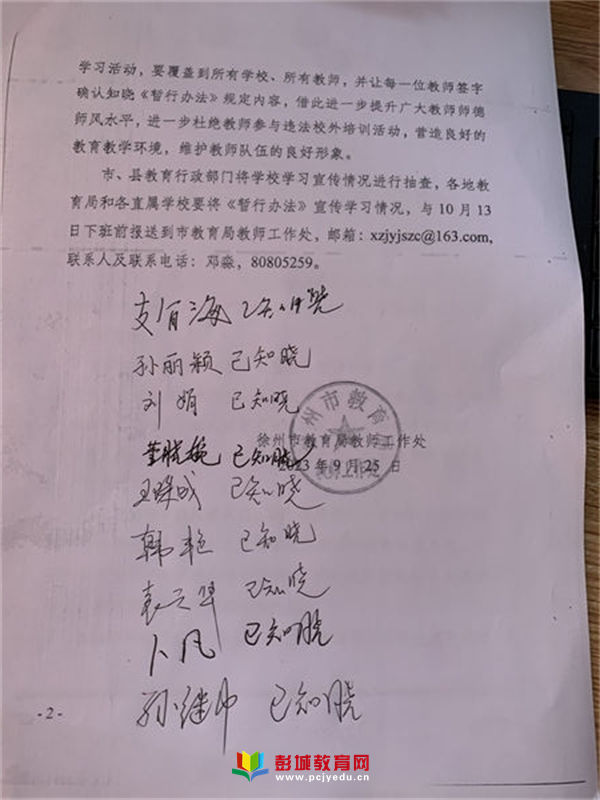 学习活动，要覆盖到所有学校、所有教师，并让每一位教师签字
确认知晓《暂行办法》规定内容，借此进一步提升广大教师师德
师风水平，进一步杜绝教师参与违法校外培训活动，营造良好的
教育教学环境，维护教师队伍的良好形象。
市、县教育行政部门将学校学习宣传情况进行抽查，各地教
育局和各直属学校要将《暂行办法》宣传学习情况，与10月13
日下班前报送到市教育局教师工作处，邮箱：xzjyjszc@163.com,
联系人及联系电话：邓淼，80805259。
海 已知晓
孙丽颖 已知晓
刘娟 已知晓
州市教育
徐州市教育局教师工作处
已知晓
2023年9月25日
王 成 已知晓
韩艳 已知晓
袁 已知晓
卜凡 已知晓
孙继中 已知晓
-2-
彭城教育网
www.pcjyedu.cn